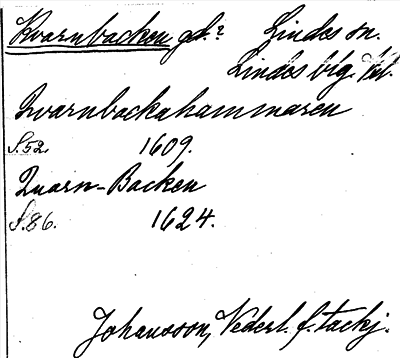 Kvarnbacken gd.? Lindes sn.
Lindes blg. Väl.
Qvarnbackahammaren
S. 52. 1609.
Quarn-Backen
S. 86. 1624.
Johansson, Vederl. f. tackj.